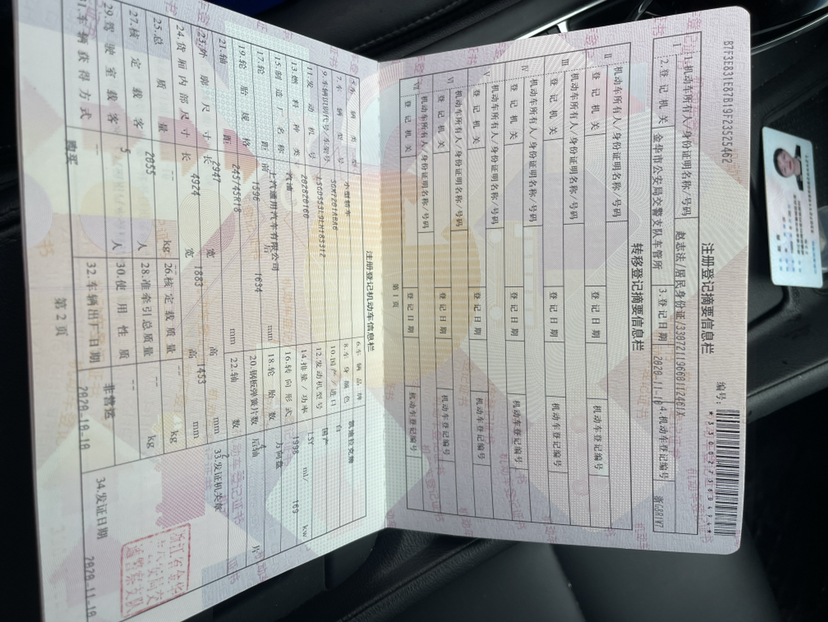 注册登记摘要信息栏
编号:
I
1.机动车所有人/身份证明名称/号码
赵志法/居民身份证/
2.登记机关
金华市公安局交警支队车管所
3.登记日期
2020-11-18
4.机动车登记编号
转移登记摘要信息栏
II
机动车所有人/身份证明名称/号码
登记机关
登记日期
机动车登记编号
III
机动车所有人/身份证明名称/号码
登记机关
登记日期
机动车登记编号
IV
机动车所有人/身份证明名称/号码
登记机关
登记日期
机动车登记编号
V
机动车所有人/身份证明名称/号码
登记机关
登记日期
机动车登记编号
VI
机动车所有人/身份证明名称/号码
登记机关
登记日期
机动车登记编号
VII
机动车所有人/身份证明名称/号码
登记机关
登记日期
机动车登记编号
第1页
注册登记机动车信息栏
小型轿车
6.车辆品牌
凯迪拉克牌
7.车辆型号
8.车身颜色
9.车辆识别代号/车架号
10.国产/进口
国产
11.发动机号
12.发动机型号
LSY
13.燃料种类
汽油
14.排量/功率
1998
ml/
169
kw
15.制造厂名称
上汽通用汽车有限公司
16.转向形式
方向盘
17.轮距
前
1596
后
1634
mm
18.轮胎数
19.轮胎规格
245/45R18
20.钢板弹簧片数
后轴
片
21.轴距
2947
mm
22.轴数
23.外廓尺寸
长
4924
宽
1883
高
1453
mm
33.发证机关章
24.货厢内部尺寸
长
--
宽
--
高
--
mm
25.总质量
2055
kg
26.核定载质量
--
kg
27.核定载客
5
人
28.准牵引总质量
--
kg
29.驾驶室载客
--
人
30.使用性质
非营运
34.发证日期
31.车辆获得方式
购买
32.车辆出厂日期
2020-10-18
2020-11-18
第2页